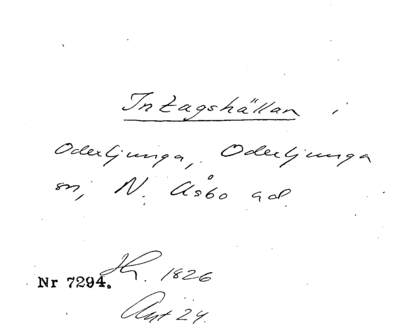 Intagshällan i
Oderljunga, Oderljunga
sn, N. Åsbo hd.
Nr 7294. Hr. 1826
Ant 24.